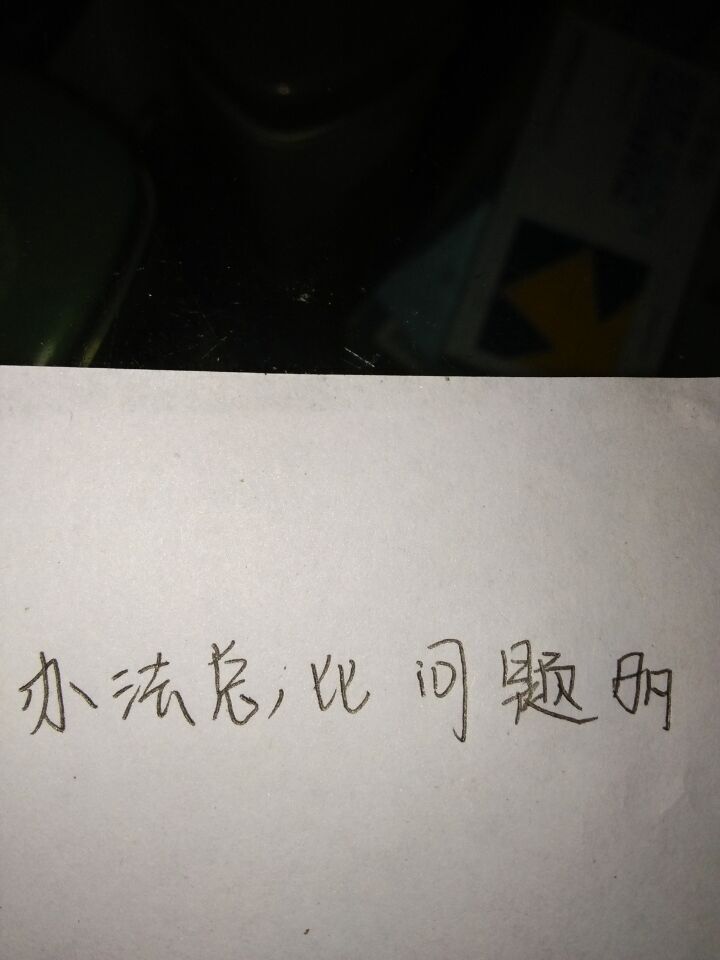 办法总比问题